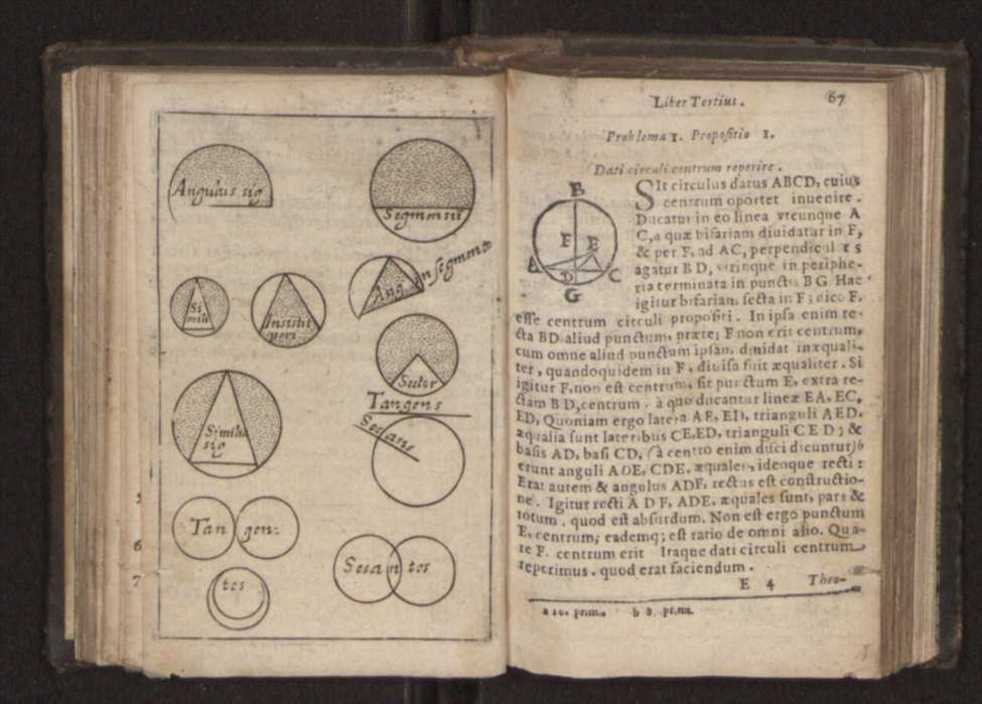 Angulus sig
Segmentū
Simili
Instīti
peri
Ang in segmento
Sector
Tangens
Secans
Similia
sig
Tan gen:
tes
Secan tes
5
6
7
Liber Tertius. 67
Problema 1. Propositio 1.
Dati circuli centrum reperire.
B
F E
A D C
G
SIt circulus datus ABCD, cuius
centrum oportet inuenire.
Ducatur in eo linea vtcunque A
C, a quæ bifariam diuidatur in F,
& per F, ad AC, perpendicul r s
agatur B D, vtrinque in periphe-
ria terminata in punctis B G Hac
igitur bifariam secta in F; dico F,
esse centrum circuli propositi. In ipsa enim re-
cta BD aliud punctum, præter F non erit centrum,
cum omne aliud punctum ipsam diuidat inæquali-
ter, quandoquidem in F, diuisa fuit æqualiter. Si
igitur F, non est centrum, sit punctum E, extra re-
ctam B D, centrum. à quo ducantur lineæ EA, EC,
ED, Quoniam ergo latera AE, ED, trianguli AED,
æqualia sunt lateribus CE, ED, trianguli C E D; &
basis AD, basi CD, (à centro enim duci dicuntur) b
erunt anguli ADE, CDE, æquales, ideoque recti:
Erat autem & angulus ADF, rectus est constructio-
ne. Igitur recti A D F, ADE, æquales sunt, pars &
totum. quod est absurdum. Non est ergo punctum
E, centrum; eademq; est ratio de omni alio. Qua-
re F. centrum erit Itaque dati circuli centrum
reperimus. quod erat faciendum.
E 4 Theo-
a 10. primi b 8. primi